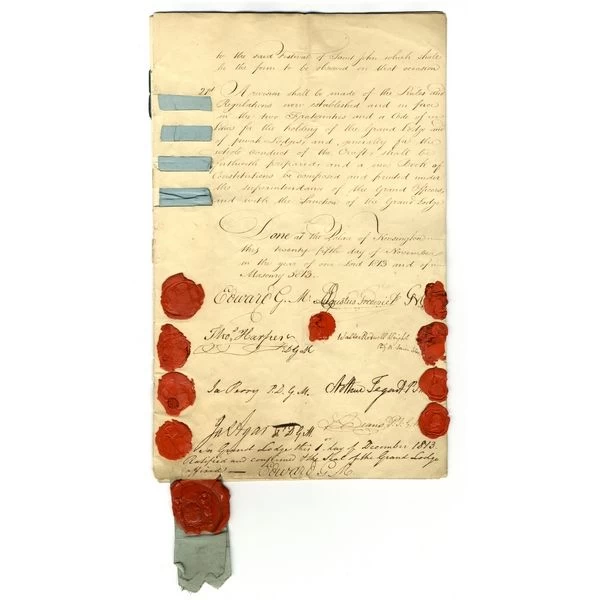 to the said Festival of Saint John which shall
be the form to be observed on that occasion
21st A revision shall be made of the Rules and
Regulations now established and in force
in the two Fraternities and a Code of
Laws for the holding of the Grand Lodge and
of private Lodges, and generally for the
whole conduct of the Craft, shall be
forthwith prepared, and a new Book of
Constitutions be composed and printed under
the superintendance of the Grand Officers,
and with the Sanction of the Grand Lodge
Done at the Palace of Kensington
this twenty fifth day of November
in the year of our Lord 1813 and of
Masonry 5813.
Edward G. M. Augustus Frederick G.M.
Thos. Harper P.D.G.M Waller Rodwell Wright
Ja Perry P.D.G.M. Arthur Tegart
Jas Agar P.D.G.M. J. Deans P.J.G.
In Grand Lodge this 1st day of December 1813.
Ratified and confirmed & the Seal of the Grand Lodge
affixed — Edward G.M.